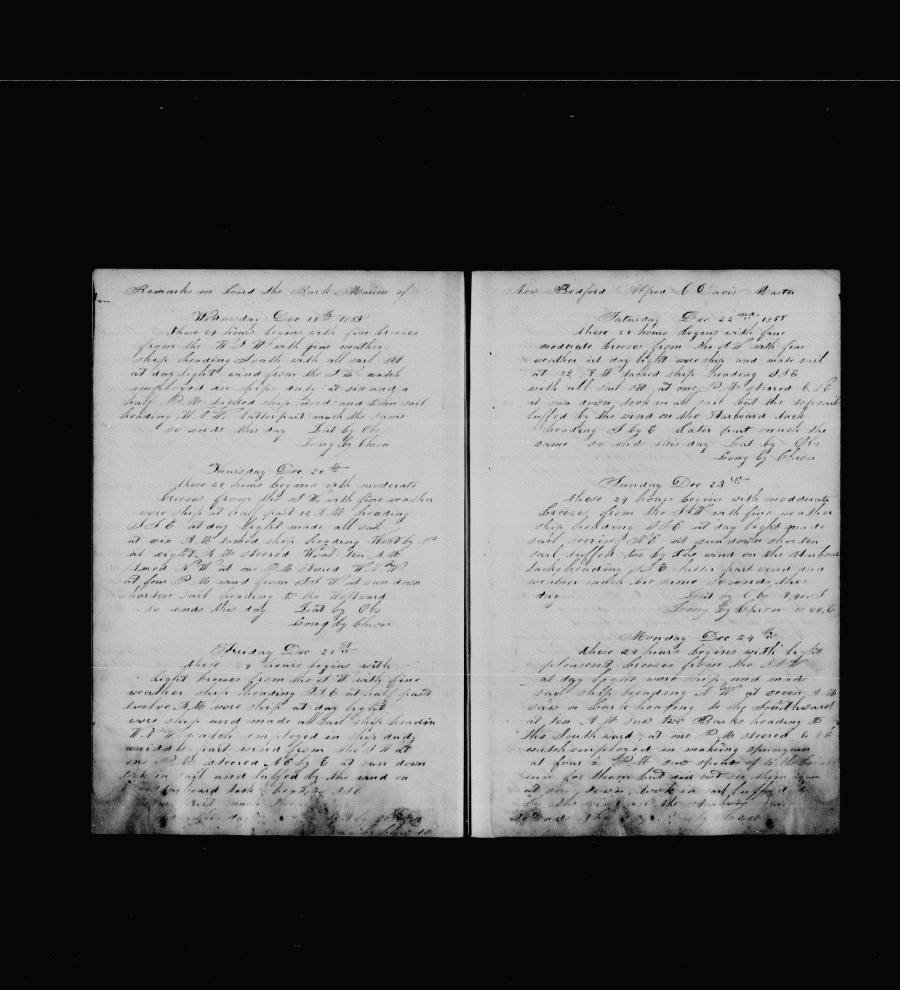 Remarks on board the Bark Marion of
Wednesday Dec 19th 1855
these 24 hours begins with fine breezes
from the W S W with fine weather
ship heading South with all sail set
at daylight wind from the S W watch
employed in ships duty at six and a
half P.M tacked ship and down sail
heading W N W latter part much the same
so ends this day Lat by Obs
Long by Chron
Thursday Dec 20th
these 24 hours begins with moderate
breezes from the S W with fine weather
wore ship at half past 12 A M heading
S S E at day light made all sail
at six A M tacked ship heading W by N
at eight A M steered W at ten A M
steered N W at one P M steered W N W
at four P M wind from S S W at sun down
shorten sail heading to the Westward
so ends this day Lat by Obs
Long by Chron
Friday Dec 21st
these 24 hours begins with
light breezes from the S W with fine
weather ship heading S S E at half past
twelve A M wore ship at day light
wore ship and made all sail ship heading
W N W watch employed in ship duty
middle part wind from the S W at
one P M steered N E by E at sun down
took in sail and luffed by the wind on
larboard tack heading S S E
part much
this day by
New Bedford Alfred C Davis Master
Saturday Dec 22nd 1855
these 24 hours begins with fine
moderate breezes from the S W with fine
weather at day light wore ship and made sail
at 12 A M tacked ship heading S S E
with all sail set at one P M steered E S E
at sun down took in all sail but the topsail
luffed by the wind on the Starboard tack
heading S by E Later part much the
same so ends this day Lat by Obs
Long by Chron
Sunday Dec 23rd
these 24 hours begins with modderate
breezes from the S W with fine weather
ship heading S S E at day light made
sail steering N E at sun down shorten
sail luffed too by the wind on the starboard
tack heading S E latter part wind and
weather much the same So ends this
day Lait by Obs
Long by Chron
Monday Dec 24th
these 24 hours begins with light
pleasent breezes from the S S W
at day light wore ship and made
sail ship heading N W at seven A M
saw a bark heading to the Southward
at ten A M saw two Barks heading to
the Southward at one P M steered E S E
watch employed in making spunyarn
at four P M saw spout of
run for them but did not see them again
at sun down took in sail luffed to
by the wind on the
So ends this